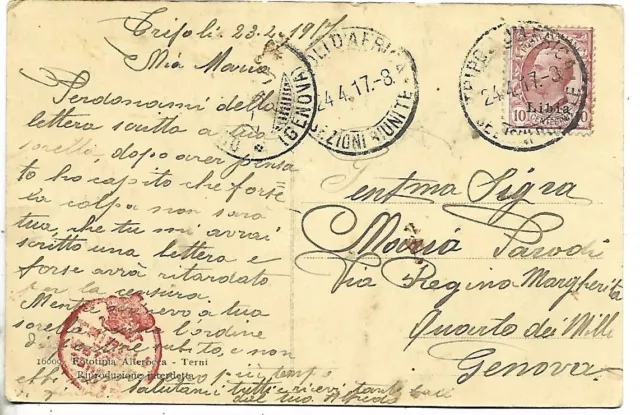 Tripoli 23.4.1917
Mia Maria
Perdonami della
lettera scritta a tua
sorella, dopo aver pensa
to ho capito che forse
la colpa non sarà
tua, che tu mi avrai
scritto una lettera e
forse avrà ritardato
per la censura.
Mente scrivevo a tua
sorella l'ordine
subito, e non
ebbi più tempo
Salutami tutti e ricevi tanti baci
dal tuo Alfredo
16609 Fototipia Alterocca - Terni
Riproduzione interdetta
(GENOVA)
TRIPOLI D'AFRICA
24.4.17.-8
SEZIONI RIUNITE
TRIPOLI D'AFRICA
24.4.17.-8
SEZIONI RIUNITE
Libia
10 CENTESIMI 10
Gentma Sigra
Maria Parodi
Via Regina Margherita
Quarto dei Mille
Genova